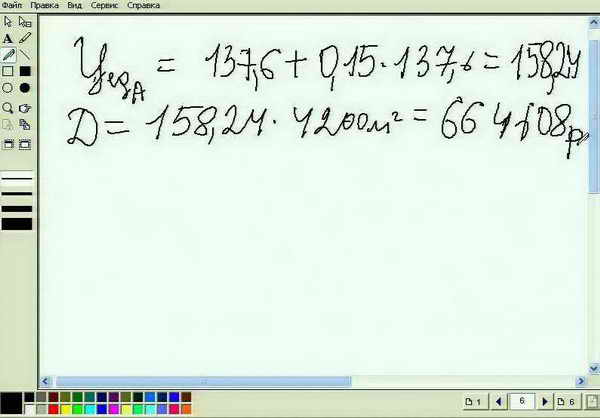 Файл Правка Вид Сервис Справка
A
Ц ед A = 137,6 + 0,15 · 137,6 = 158,24
D = 158,24 · 4200 м² = 664608 р
1 6 6